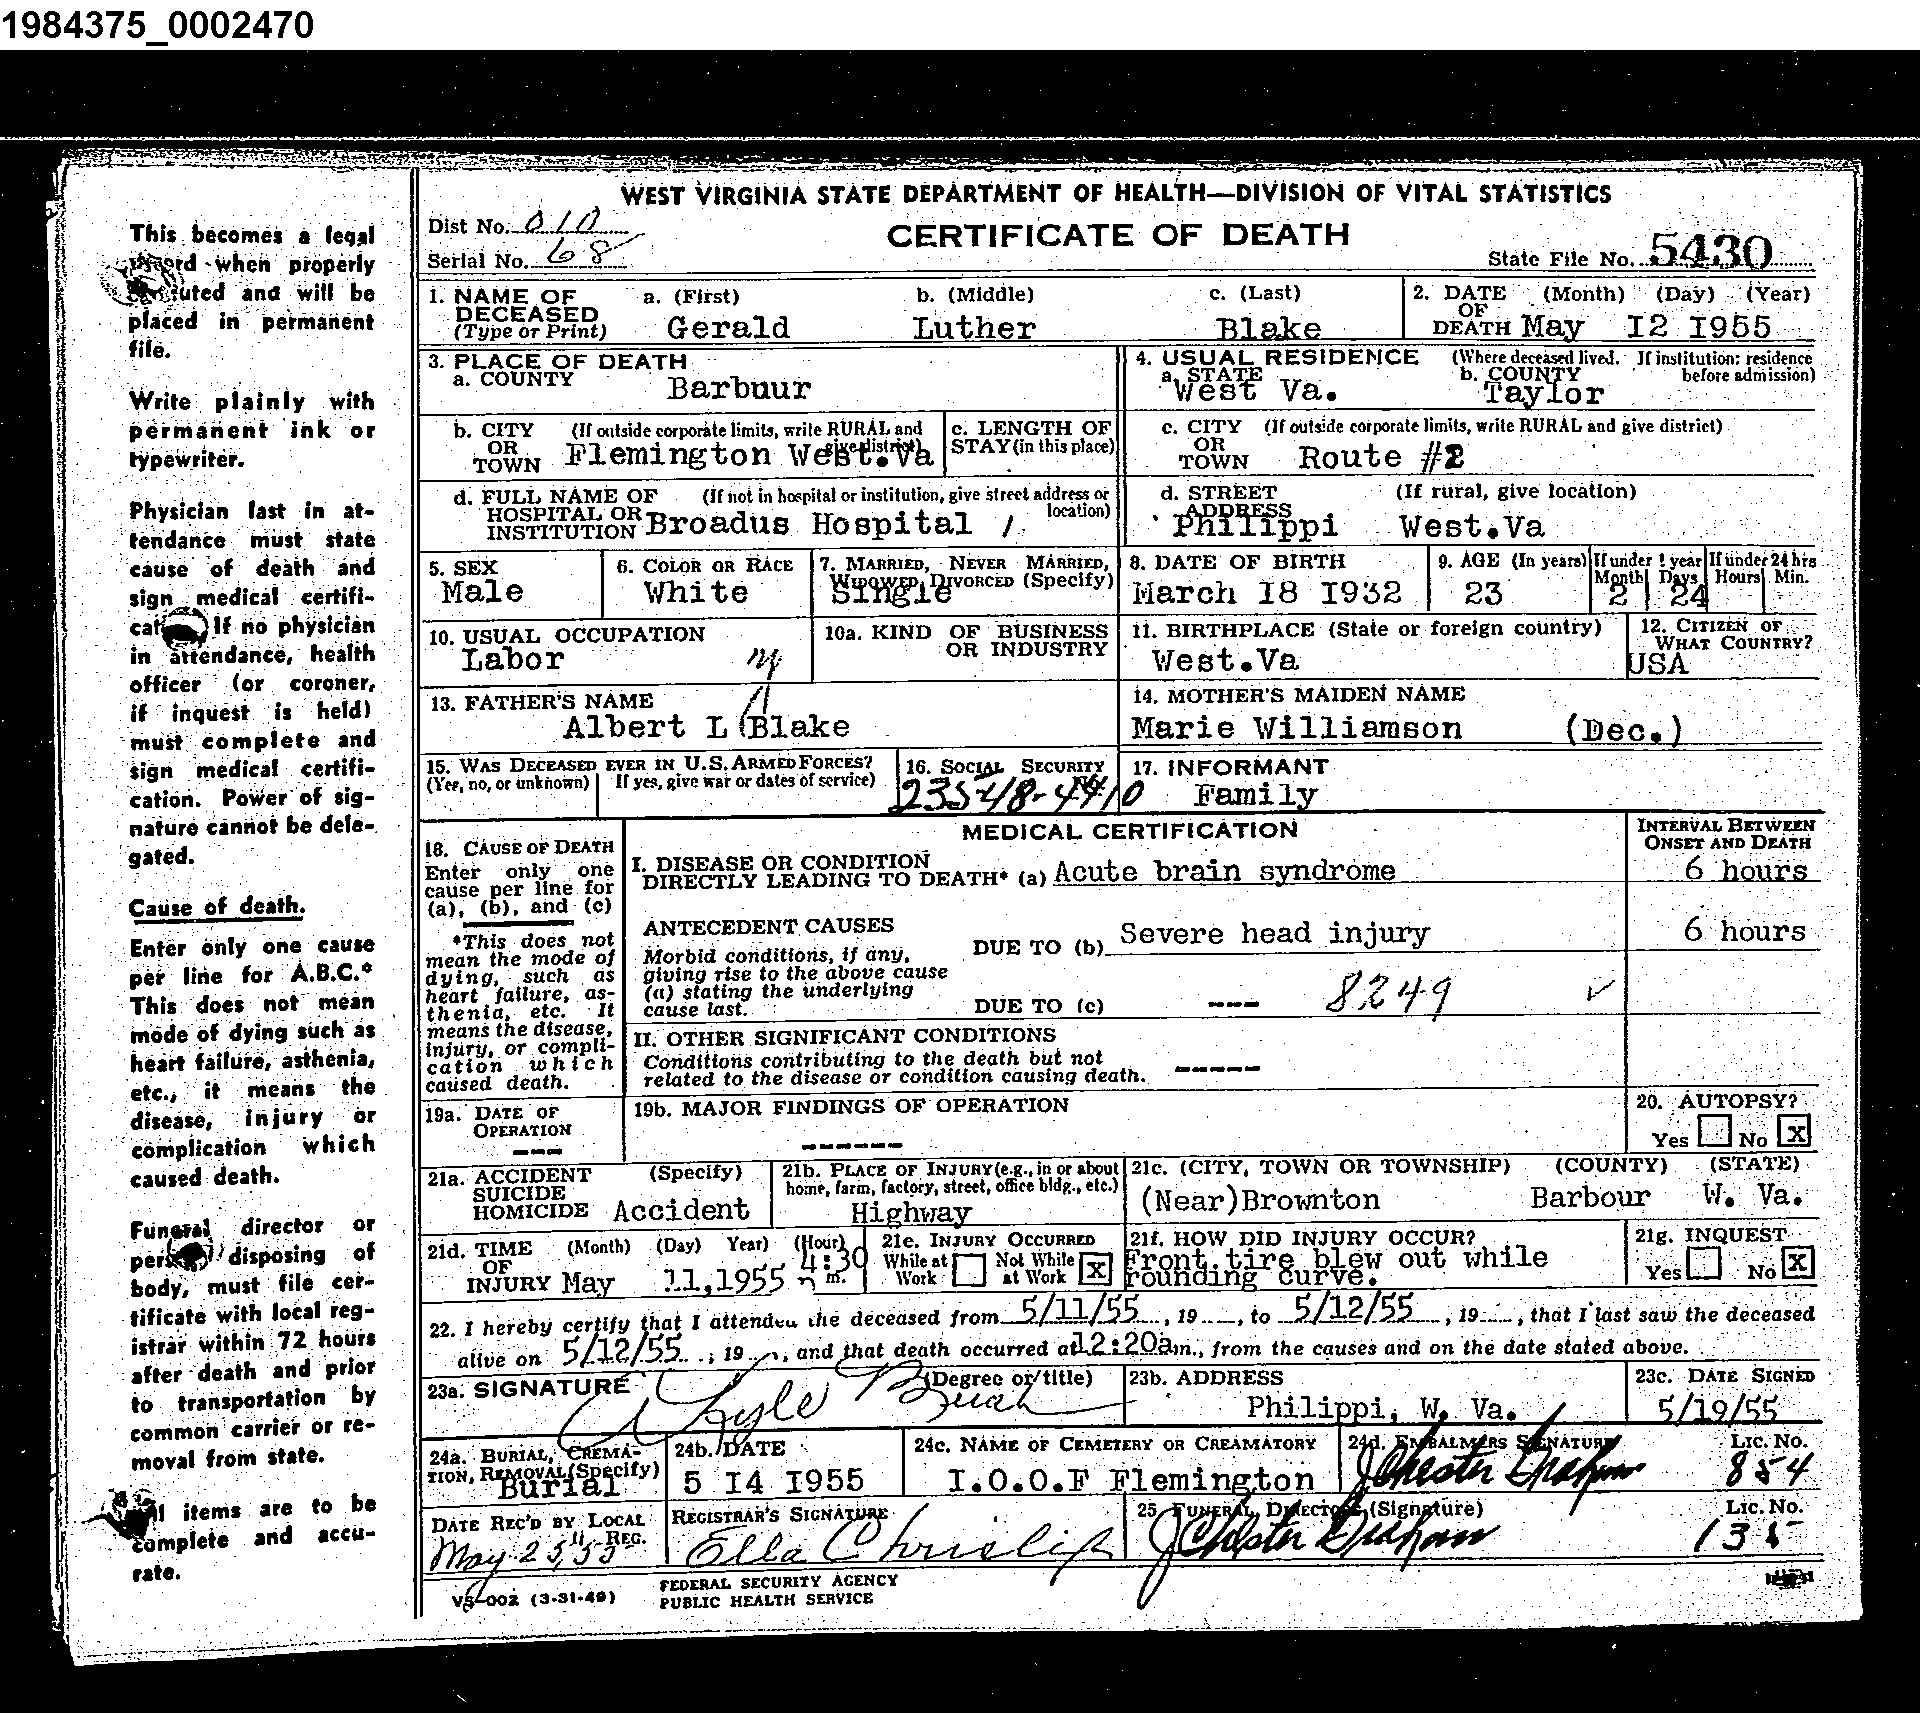 1984375_0002470
This becomes a legal
record when properly
executed and will be
placed in permanent
file.
Write plainly with
permanent ink or
typewriter.
Physician last in at-
tendance must state
cause of death and
sign medical certifi-
cation. If no physician
in attendance, health
officer (or coroner,
if inquest is held)
must complete and
sign medical certifi-
cation. Power of sig-
nature cannot be dele-
gated.
Cause of death.
Enter only one cause
per line for A.B.C.*
This does not mean
mode of dying such as
heart failure, asthenia,
etc., it means the
disease, injury or
complication which
caused death.
Funeral director or
person disposing of
body, must file cer-
tificate with local reg-
istrar within 72 hours
after death and prior
to transportation by
common carrier or re-
moval from state.
All items are to be
complete and accu-
rate.
WEST VIRGINIA STATE DEPARTMENT OF HEALTH—DIVISION OF VITAL STATISTICS
Dist No. 010
CERTIFICATE OF DEATH
Serial No. 68
State File No. 5430
1. NAME OF DECEASED (Type or Print) a. (First) b. (Middle) c. (Last)
Gerald Luther Blake
2. DATE OF DEATH (Month) (Day) (Year)
May I2 I955
3. PLACE OF DEATH
a. COUNTY Barbnur
4. USUAL RESIDENCE (Where deceased lived. If institution: residence before admission)
a. STATE West Va. b. COUNTY Taylor
b. CITY OR TOWN (If outside corporate limits, write RURAL and give district)
Flemington West.Va
c. LENGTH OF STAY (in this place)
c. CITY OR TOWN (If outside corporate limits, write RURAL and give district)
Route #2
d. FULL NAME OF HOSPITAL OR INSTITUTION (If not in hospital or institution, give street address or location)
Broadus Hospital
d. STREET ADDRESS (If rural, give location)
Philippi West.Va
5. SEX
Male
6. COLOR OR RACE
White
7. MARRIED, NEVER MARRIED, WIDOWED, DIVORCED (Specify)
Single
8. DATE OF BIRTH
March I8 I932
9. AGE (In years) If under 1 year If under 24 hrs
Month Days Hours Min.
23 2 24
10. USUAL OCCUPATION
Labor
10a. KIND OF BUSINESS OR INDUSTRY
11. BIRTHPLACE (State or foreign country)
West.Va
12. CITIZEN OF WHAT COUNTRY?
USA
13. FATHER'S NAME
Albert L Blake
14. MOTHER'S MAIDEN NAME
Marie Williamson (Dec.)
15. WAS DECEASED EVER IN U.S. ARMED FORCES?
(Yes, no, or unknown) If yes, give war or dates of service)
16. SOCIAL SECURITY
235-48-4410
17. INFORMANT
Family
18. CAUSE OF DEATH
Enter only one
cause per line for
(a), (b), and (c)
*This does not
mean the mode of
dying, such as
heart failure, as-
thenia, etc. It
means the disease,
injury, or compli-
cation which
caused death.
MEDICAL CERTIFICATION
INTERVAL BETWEEN ONSET AND DEATH
I. DISEASE OR CONDITION
DIRECTLY LEADING TO DEATH* (a) Acute brain syndrome 6 hours
ANTECEDENT CAUSES
DUE TO (b) Severe head injury 6 hours
Morbid conditions, if any,
giving rise to the above cause
(a) stating the underlying
cause last.
DUE TO (c) --- 8249 ✓
II. OTHER SIGNIFICANT CONDITIONS
Conditions contributing to the death but not
related to the disease or condition causing death. -----
19a. DATE OF OPERATION
---
19b. MAJOR FINDINGS OF OPERATION
------
20. AUTOPSY?
Yes No X
21a. ACCIDENT SUICIDE HOMICIDE (Specify)
Accident
21b. PLACE OF INJURY (e.g., in or about home, farm, factory, street, office bldg., etc.)
Highway
21c. (CITY, TOWN OR TOWNSHIP) (COUNTY) (STATE)
(Near)Brownton Barbour W. Va.
21d. TIME OF INJURY (Month) (Day) Year) (Hour)
May 11,1955 4:30 m.
21e. INJURY OCCURRED
While at Work Not While at Work X
21f. HOW DID INJURY OCCUR?
Front tire blew out while
rounding curve.
21g. INQUEST
Yes No X
22. I hereby certify that I attended the deceased from 5/11/55, 19 , to 5/12/55, 19 , that I last saw the deceased
alive on 5/12/55, 19 , and that death occurred at 12:20am., from the causes and on the date stated above.
23a. SIGNATURE (Degree or title)
Kyle
23b. ADDRESS
Philippi, W. Va.
23c. DATE SIGNED
5/19/55
24a. BURIAL, CREMATION, REMOVAL (Specify)
Burial
24b. DATE
5 I4 I955
24c. NAME OF CEMETERY OR CREAMATORY
I.O.O.F Flemington
24d. EMBALMERS SIGNATURE LIC. NO.
J Chester Graham 854
DATE REC'D BY LOCAL REG.
May 25, 55
REGISTRAR'S SIGNATURE
Ella Christip
25 FUNERAL DIRECTOR (Signature) LIC. NO.
J Chester Graham 135
VS-002 (3-31-49)
FEDERAL SECURITY AGENCY
PUBLIC HEALTH SERVICE